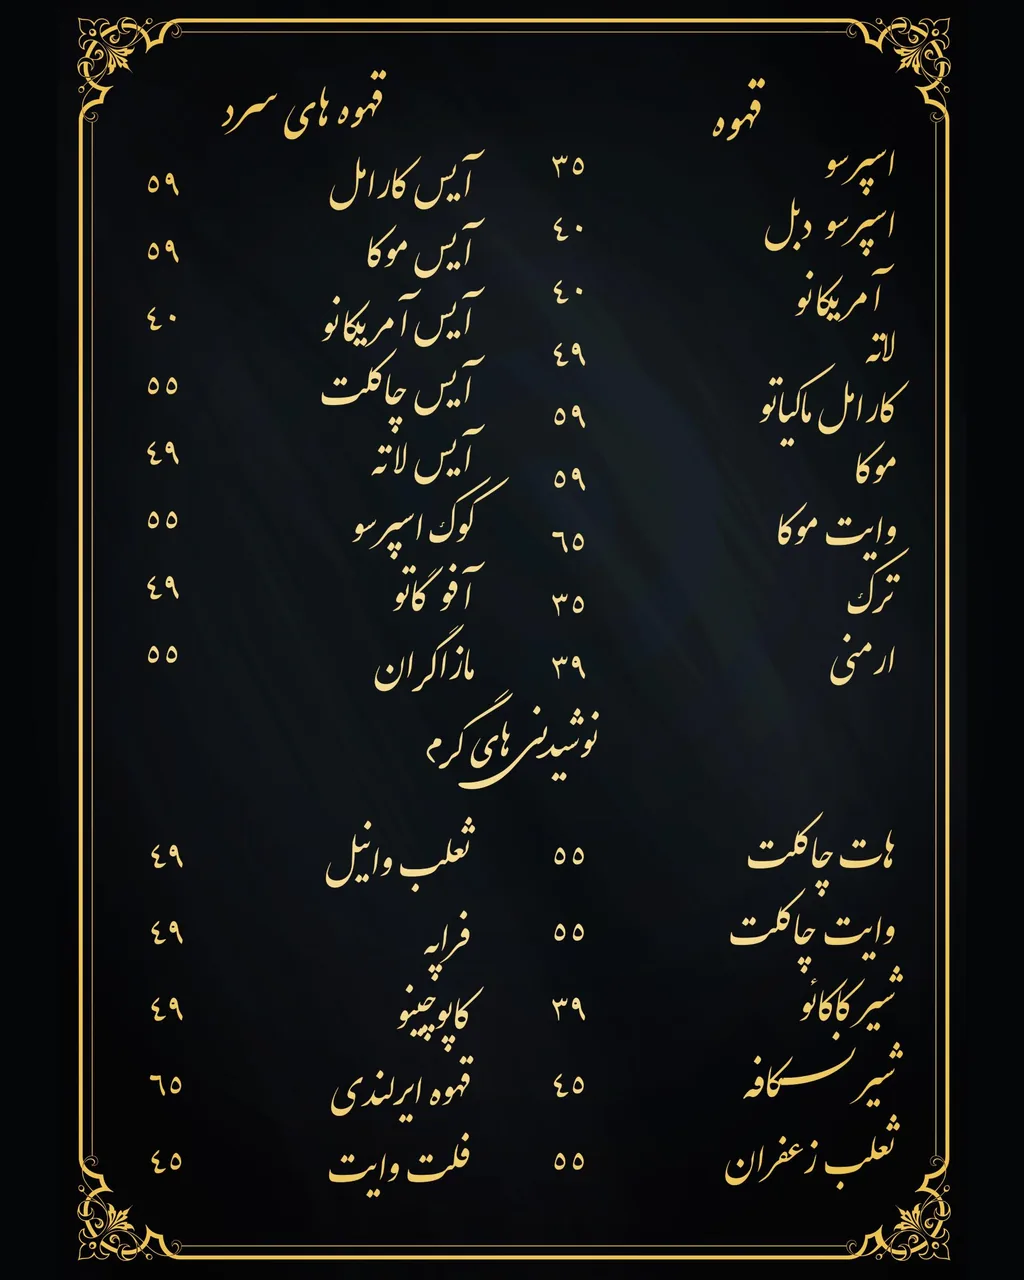 قهوه
اسپرسو ۳۵
اسپرسو دبل ٤۰
آمریکانو ٤۰
لاته ٤۹
کارامل ماکیاتو ۵۹
موکا ۵۹
وایت موکا ٦۵
ترک ۳۵
ارمنی ۳۹
قهوه های سرد
آیس کارامل ۵۹
آیس موکا ۵۹
آیس آمریکانو ٤۰
آیس چاکلت ۵۵
آیس لاته ٤۹
کوک اسپرسو ۵۵
آفو گاتو ٤۹
مازاگران ۵۵
نوشیدنی های گرم
هات چاکلت ۵۵
وایت چاکلت ۵۵
شیر کاکائو ۳۹
شیر نسکافه ٤۵
ثعلب زعفران ۵۵
ثعلب وانیل ٤۹
فراپه ٤۹
کاپوچینو ٤۹
قهوه ایرلندی ٦۵
فلت وایت ٤۵